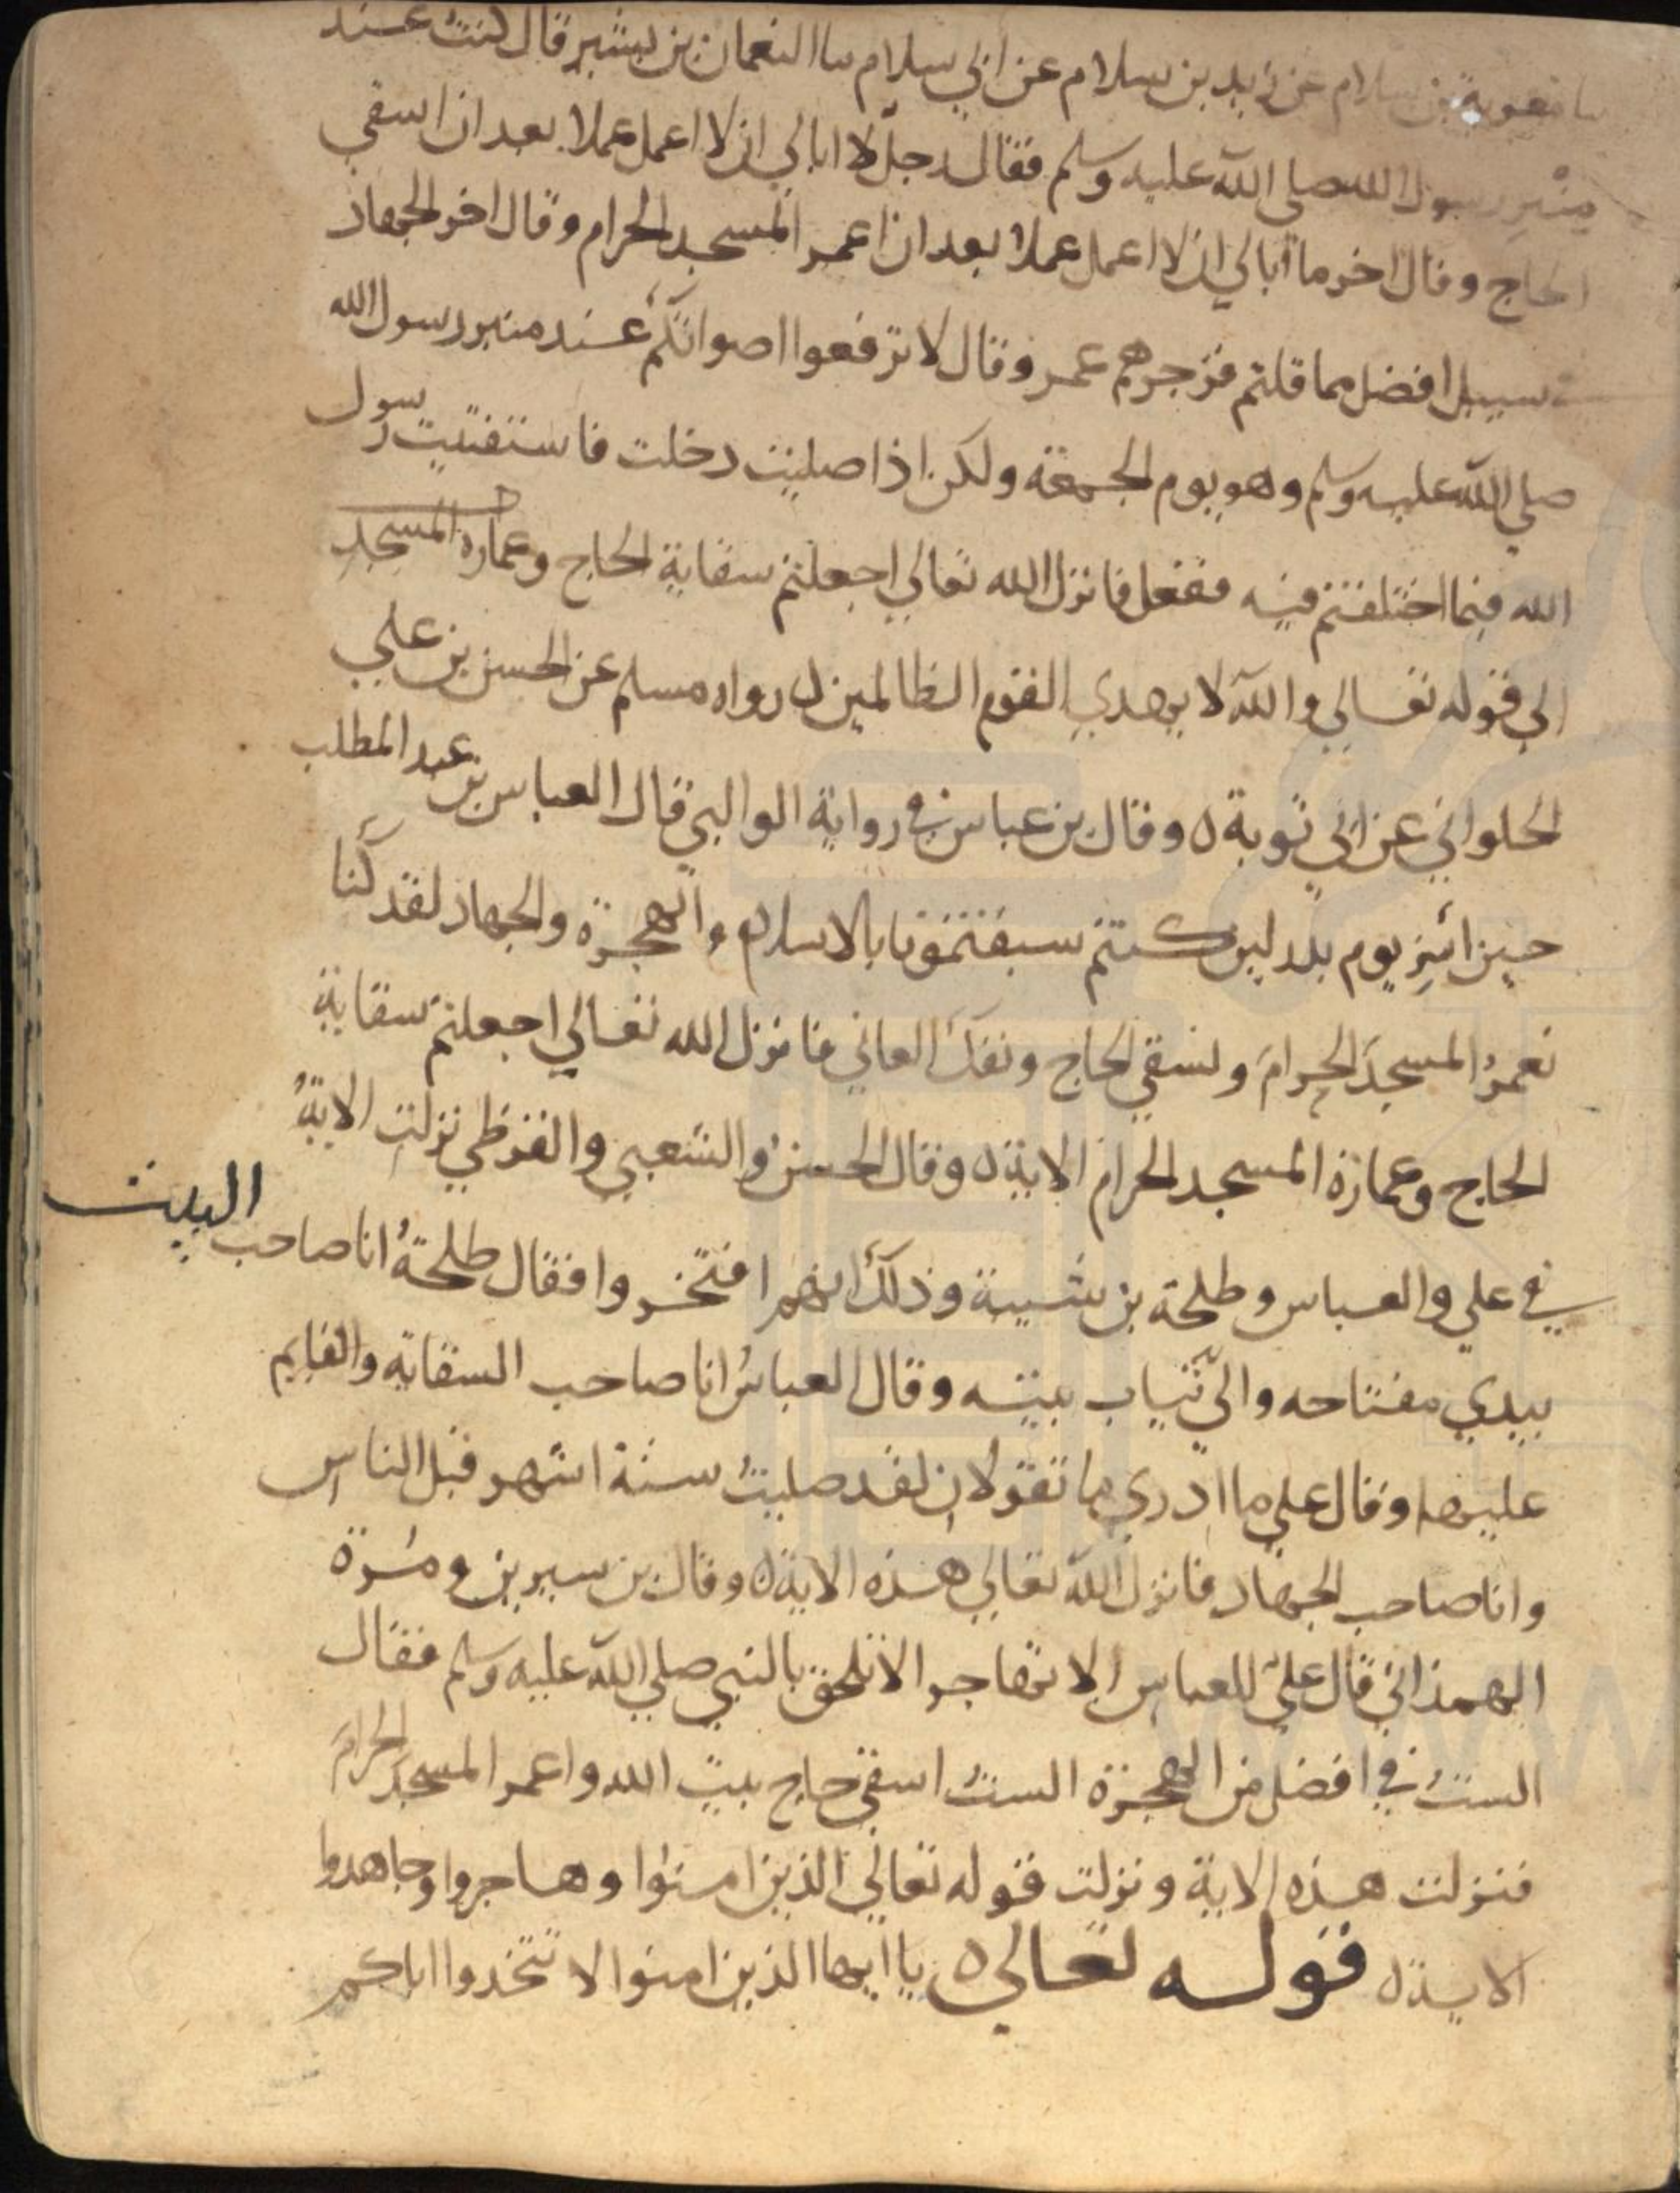 سا معوية بن سلام عن زيد بن سلام عن ابي سلام سا النعمان بن بشير قال كنت عند
منبر رسول الله صلى الله عليه وسلم فقال رجل لا ابالي ان لا اعمل عملا بعد ان اسقي
الحاج وقال اخر ما ابالي ان لا اعمل عملا بعد ان اعمر المسجد الحرام وقال اخر الجهاد
سبيل افضل مما قلتم فزجرهم عمر وقال لا ترفعوا اصواتكم عند منبر رسول الله
صلي الله عليه وسلم وهو يوم الجمعة ولكن اذا صليت دخلت فاستفتيت رسول
الله فيما اختلفتم فيه ففعل فانزل الله تعالي اجعلتم سقاية الحاج وعمارة المسجد
الي قوله تعالي والله لا يهدي القوم الظالمين ه رواه مسلم عن الحسن بن علي
الحلواني عن ابي توبة ه وقال بن عباس في رواية الوالبي قال العباس بن عبد المطلب
حين اسر يوم بدر لين كنتم سبقتمونا بالاسلام والهجرة والجهاد لقد كنا
نعمر المسجد الحرام ونسقي الحاج ونفك العاني فانزل الله تعالي اجعلتم سقاية
الحاج وعمارة المسجد الحرام الاية ه وقال الحسن والشعبي والقرظي نزلت الاية
في علي والعباس وطلحة بن شيبة وذلك انهم افتخروا فقال طلحة انا صاحب البيت
بيدي مفتاحه والي ثياب بيته وقال العباس انا صاحب السقاية والقايم
عليها وقال علي ما ادري ما تقولان لقد صليت ستة اشهر قبل الناس
وانا صاحب الجهاد فانزل الله تعالي هذه الاية ه وقال بن سيرين ومرة
الهمذاني قال علي للعباس الا تهاجر الا تلحق بالنبي صلي الله عليه وسلم فقال
الست في افضل من الهجرة الست اسقي حاج بيت الله واعمر المسجد الحرام
فنزلت هذه الاية ونزلت قوله تعالي الذين امنوا وهاجروا وجاهدوا
الاية ه قوله تعالي ه يا ايها الذين امنوا لا تتخذوا اباكم